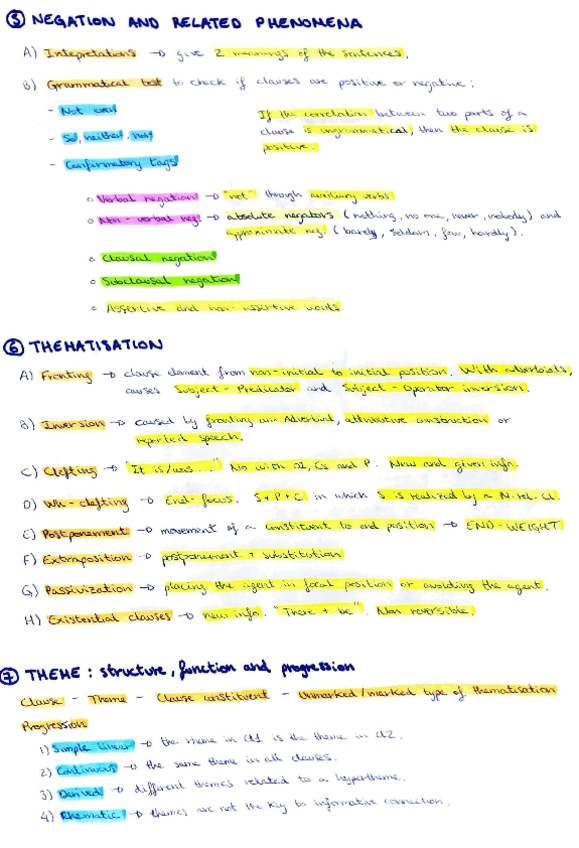 ⑤ NEGATION AND RELATED PHENOMENA
A) Intepretations → give 2 meanings of the sentences.
B) Grammatical test to check if clauses are positive or negative:
- Not even
- So, neither, nor
- Confirmatory tags
If the correlation between two parts of a
clause is ungrammatical, then the clause is
positive.
o Verbal negation → "not" through auxiliary verbs
o Non-verbal neg. → absolute negators (nothing, no one, never, nobody) and
approximate neg. (barely, seldom, few, hardly).
o Clausal negation
o Subclausal negation
o Assertive and non-assertive words
⑥ THEMATISATION
A) Fronting → clause element from non-initial to initial position. With adverbials,
causes Subject-Predicator and Subject-Operator inversion.
B) Inversion → caused by fronting an Adverbial, attributive construction or
reported speech.
C) Clefting → "It is/was..." No with OI, Cs and P. New and given info.
D) Wh-clefting → End-focus. S+P+C in which S is realized by a N-rel. Cl.
E) Postponement → movement of a constituent to end position → END-WEIGHT
F) Extraposition → postponement + substitution
G) Passivization → placing the agent in focal position or avoiding the agent.
H) Existential clauses → new info. "There + be". Non reversible.
⑦ THEME: structure, function and progression
Clause - Theme - Clause constituent - Unmarked/marked type of thematisation
Progression
1) Simple linear → the rheme in cl1 is the theme in cl2.
2) Continuous → the same theme in all clauses.
3) Derived → different themes related to a hypertheme.
4) Rhematic → themes are not the key to informative connection.